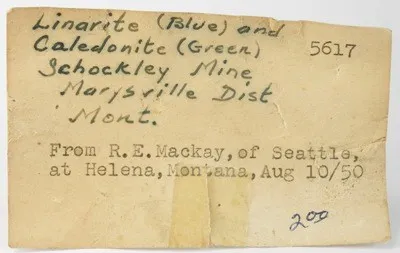 Linarite (Blue) and
Caledonite (Green)
5617
Schockley Mine
Marysville Dist
Mont.
From R.E.Mackay, of Seattle,
at Helena, Montana, Aug 10/50
200